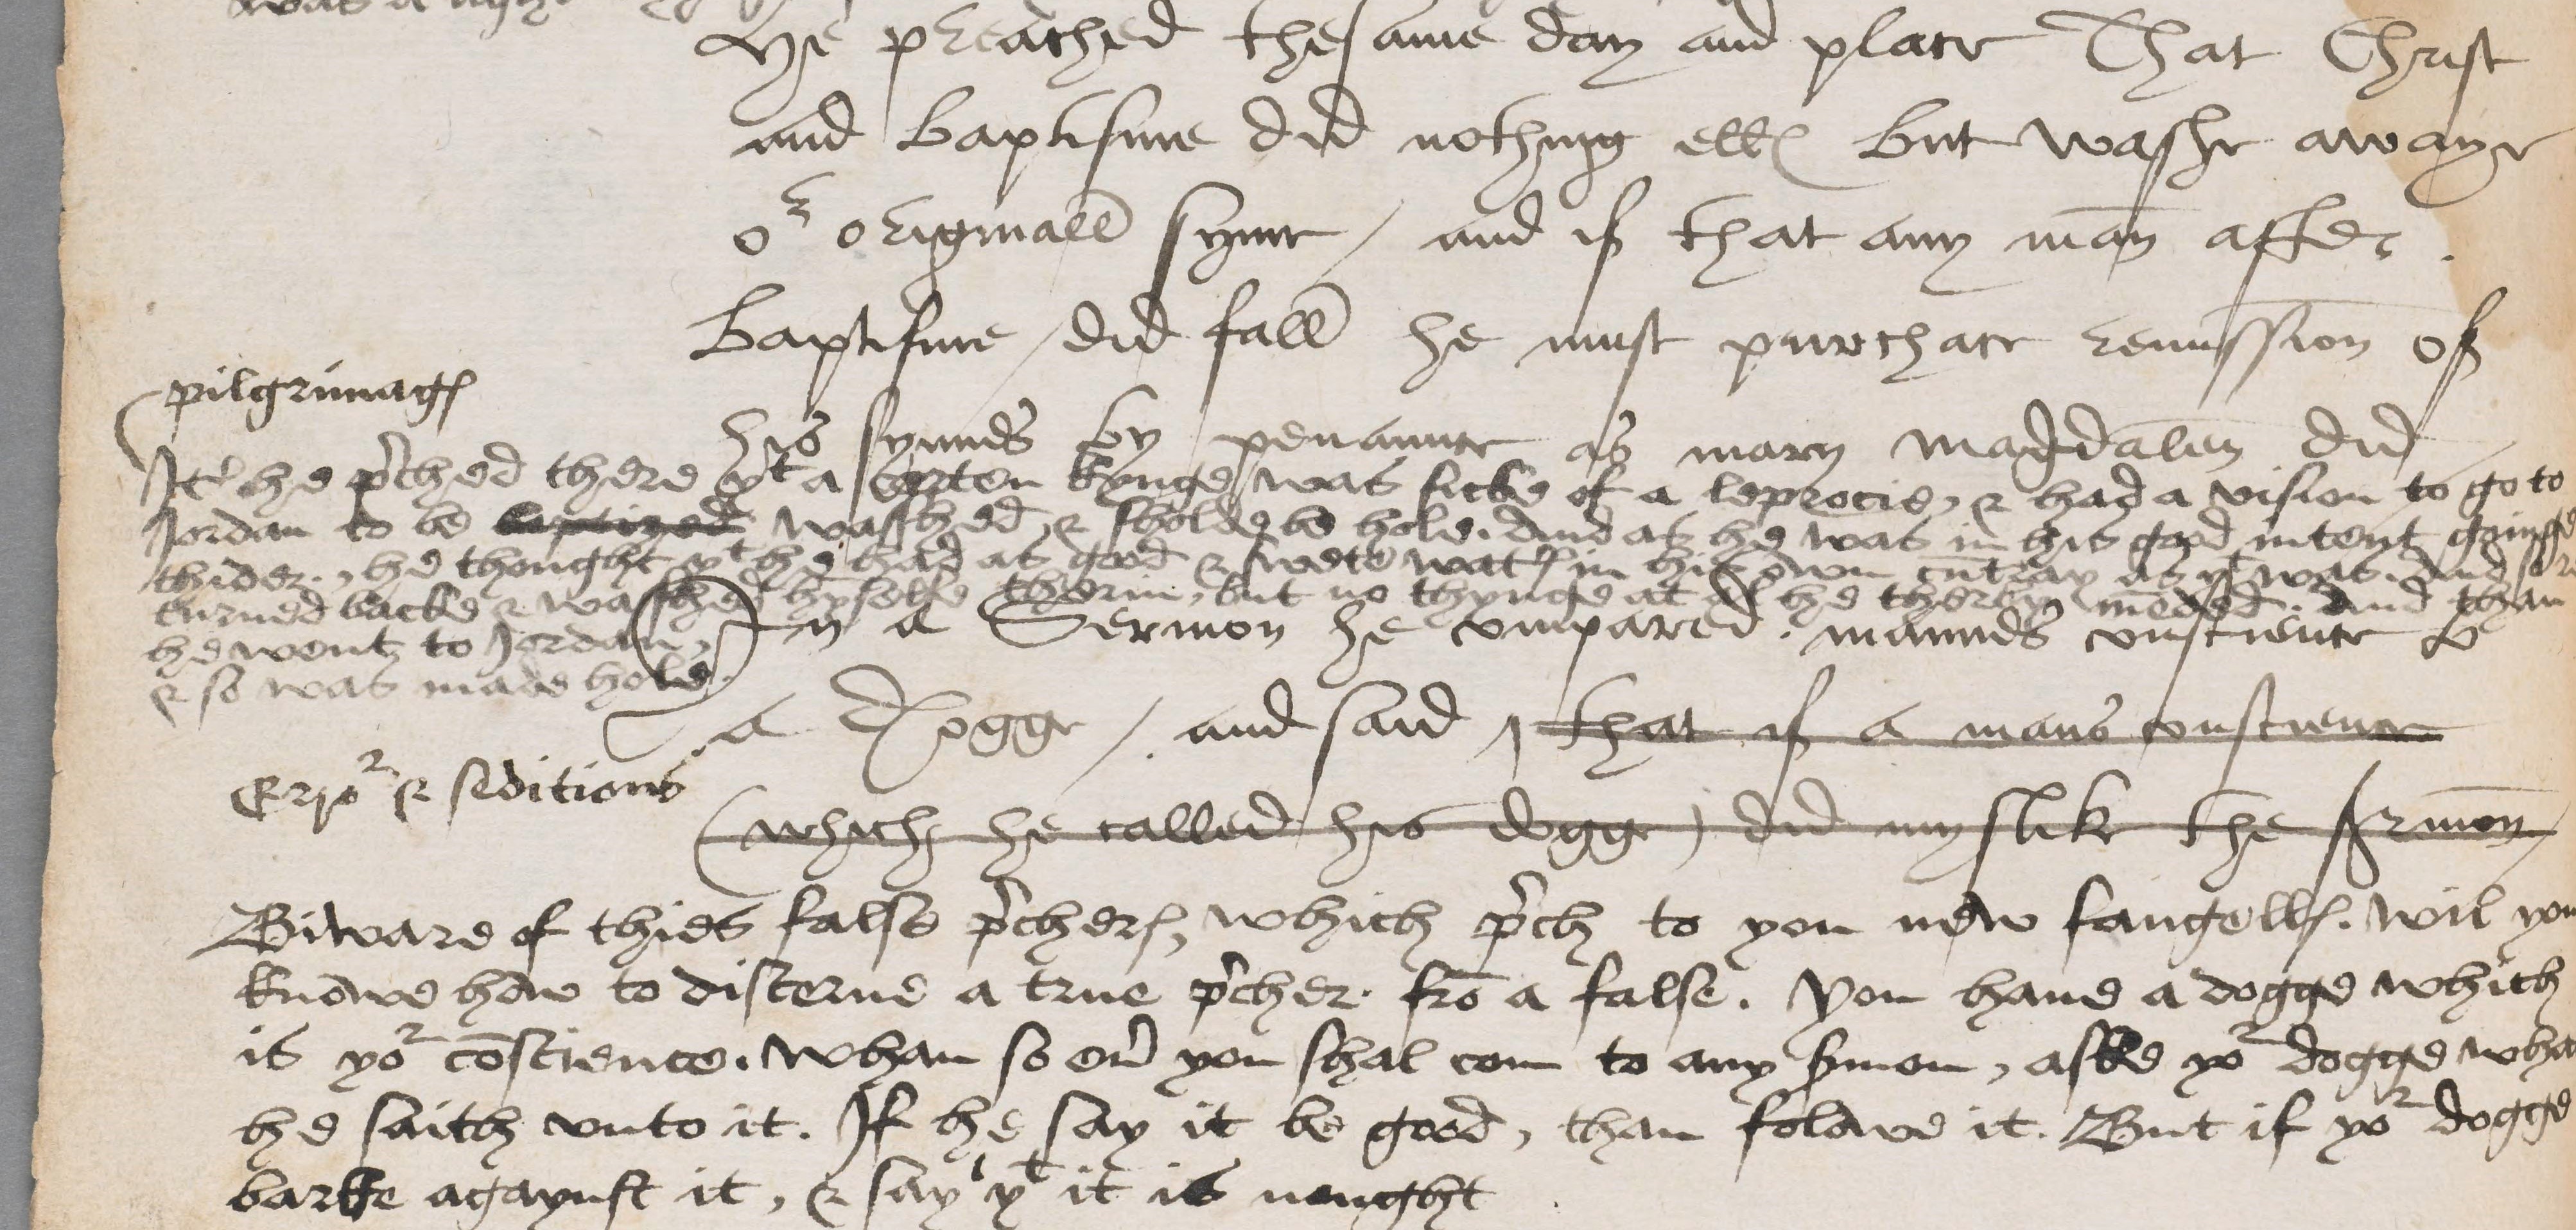 He preached thesame day and place That Christ
and Baptisme did nothing ells But washe awaye
or originall synne / and if that any man after
Baptisme / did fall he must purchace remission of
his synnes by penaunce as mary magdalen did
pilgrimages
Itm he pched there yt a certen kynge was sicke of a leprocie, & had a vision to go to
Jordan to be baptized wasched, & sholde be hole. And as he was in his good intent goinge
thider, he thought yt he had as good & swete water in his own cuntray as yt was. And so re
turned backe & wasched hymselfe therin, but no thynge at al he therby mended. And than
he went to Jordan,
& so was made hole.
In a Sermon he compared mannes conscience to
a Dogge / and said that if a mans conscience
Error & seditious
(which he called his dogge) did myslike the sermon /
Biware of thies false pchers, which pch to you new fangells. Wil you
knowe how to discerne a true pcher fro a false. You haue a dogge which
is yor coscience. Whan so eu you schal com to any smon, aske yor dogge wha
he saith vnto it. If he say it be good, than folowe it. But if yor dogge
barke agaynst it, & say yt it is nought